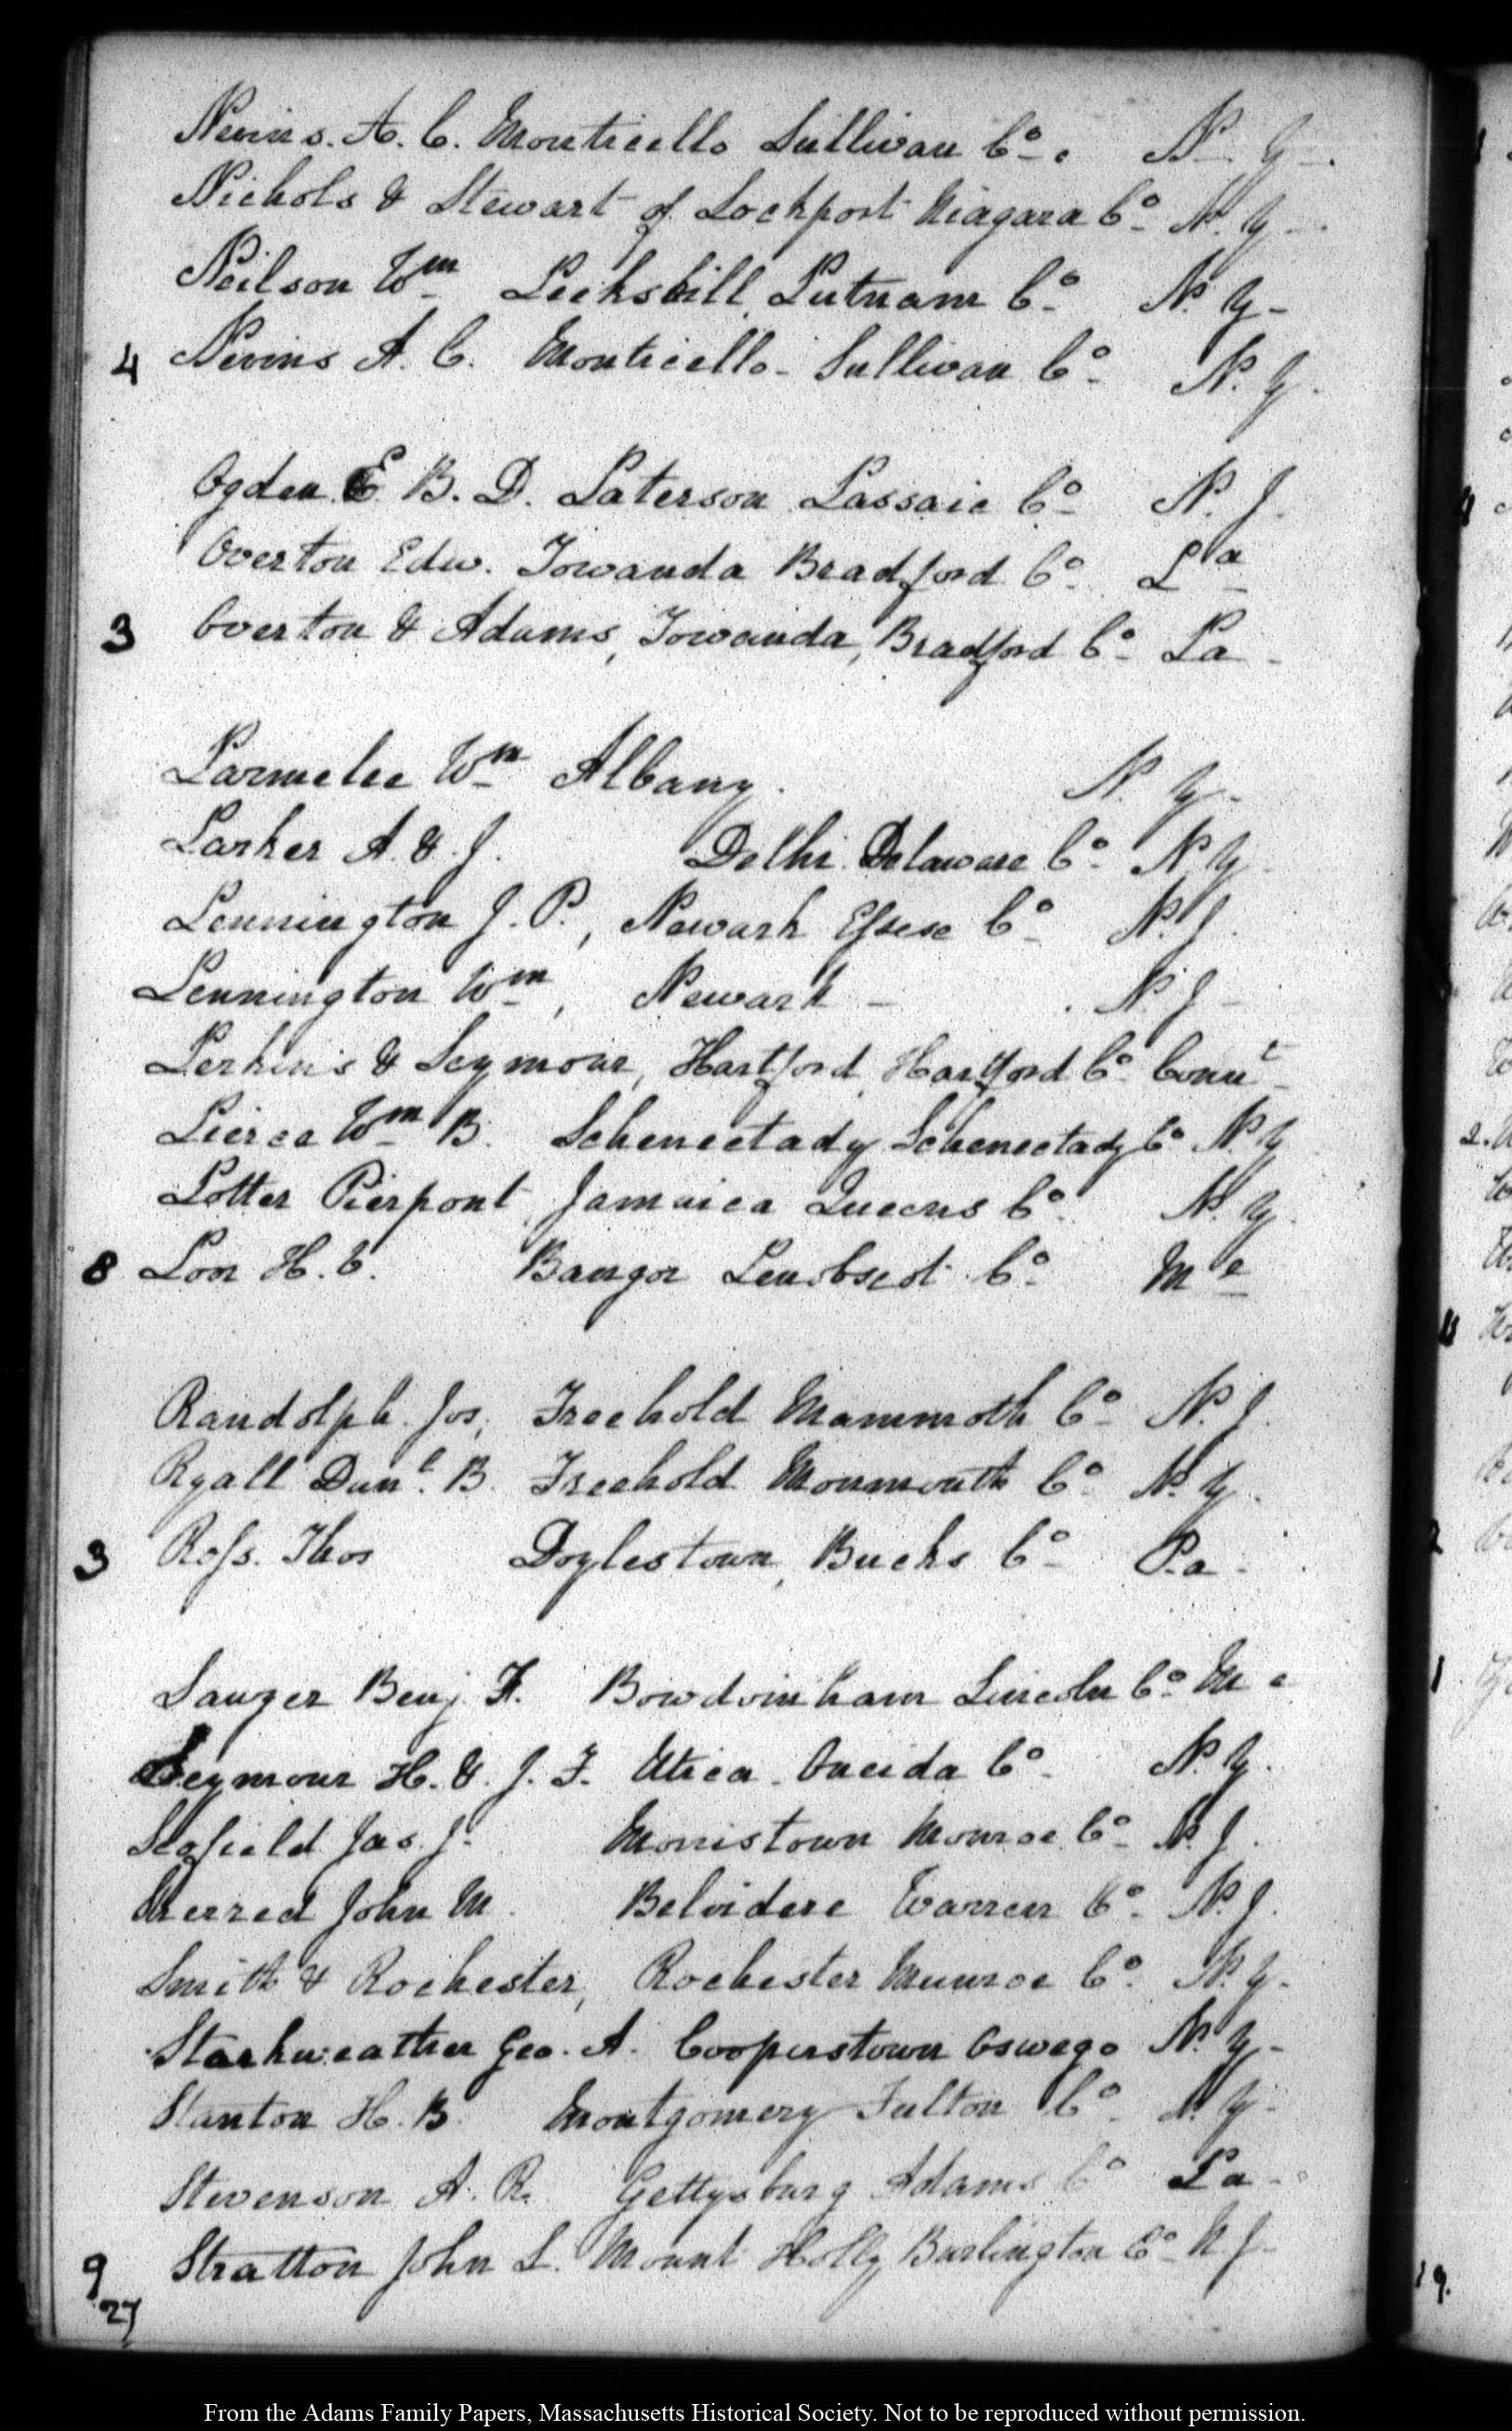 Nevins. A. C. Monticello Sullivan Co. N. Y.
Nichols & Stewart of Lockport Niagara Co. N. Y.
Neilson Wm Peekskill, Putnam Co. N. Y.
4 Nevins A. C. Monticello Sullivan Co. N. Y.
Ogden E B. D. Paterson Passaic Co. N. J.
Overton Edw. Towanda Bradford Co. Pa
3 Overton & Adams, Towanda, Bradford Co. Pa
Parmelee Wm Albany. N. Y.
Parker A. & J. Delhi Delaware Co. N. Y.
Pennington J. P., Newark Essex Co. N. J.
Pennington Wm, Newark N. J.
Perkins & Seymour, Hartford, Hartford Co. Connt
Pierce Wm B. Schenectady Schenectady Co. N. Y.
Potter Pierpont, Jamaica Queens Co. N. Y.
8 Poor H. C. Bangor Penobscot Co. Me
Randolph. Jos, Freehold Mammoth Co. N. J.
Ryall Danl. B. Freehold Monmouth Co. N. Y.
3 Ross. Thos Doylestown, Bucks Co. Pa
Sawyer Benj. F. Bowdoinham Lincoln Co. Me
Seymour H. & J. F. Utica Oneida Co. N. Y.
Scofield Jas. J. Morristown Monroe Co. N. J.
Sherred John M. Belvidere Warren Co. N. J.
Smith & Rochester, Rochester Munroe Co. N. Y.
Starkweather Geo. A. Cooperstown Oswego N. Y.
Stanton H. B. Montgomery Fulton Co. N. Y.
Stevenson A. R. Gettysburg Adams Co. Pa
9 Stratton John L. Mount Holly Burlington Co. N. J.
27
From the Adams Family Papers, Massachusetts Historical Society. Not to be reproduced without permission.